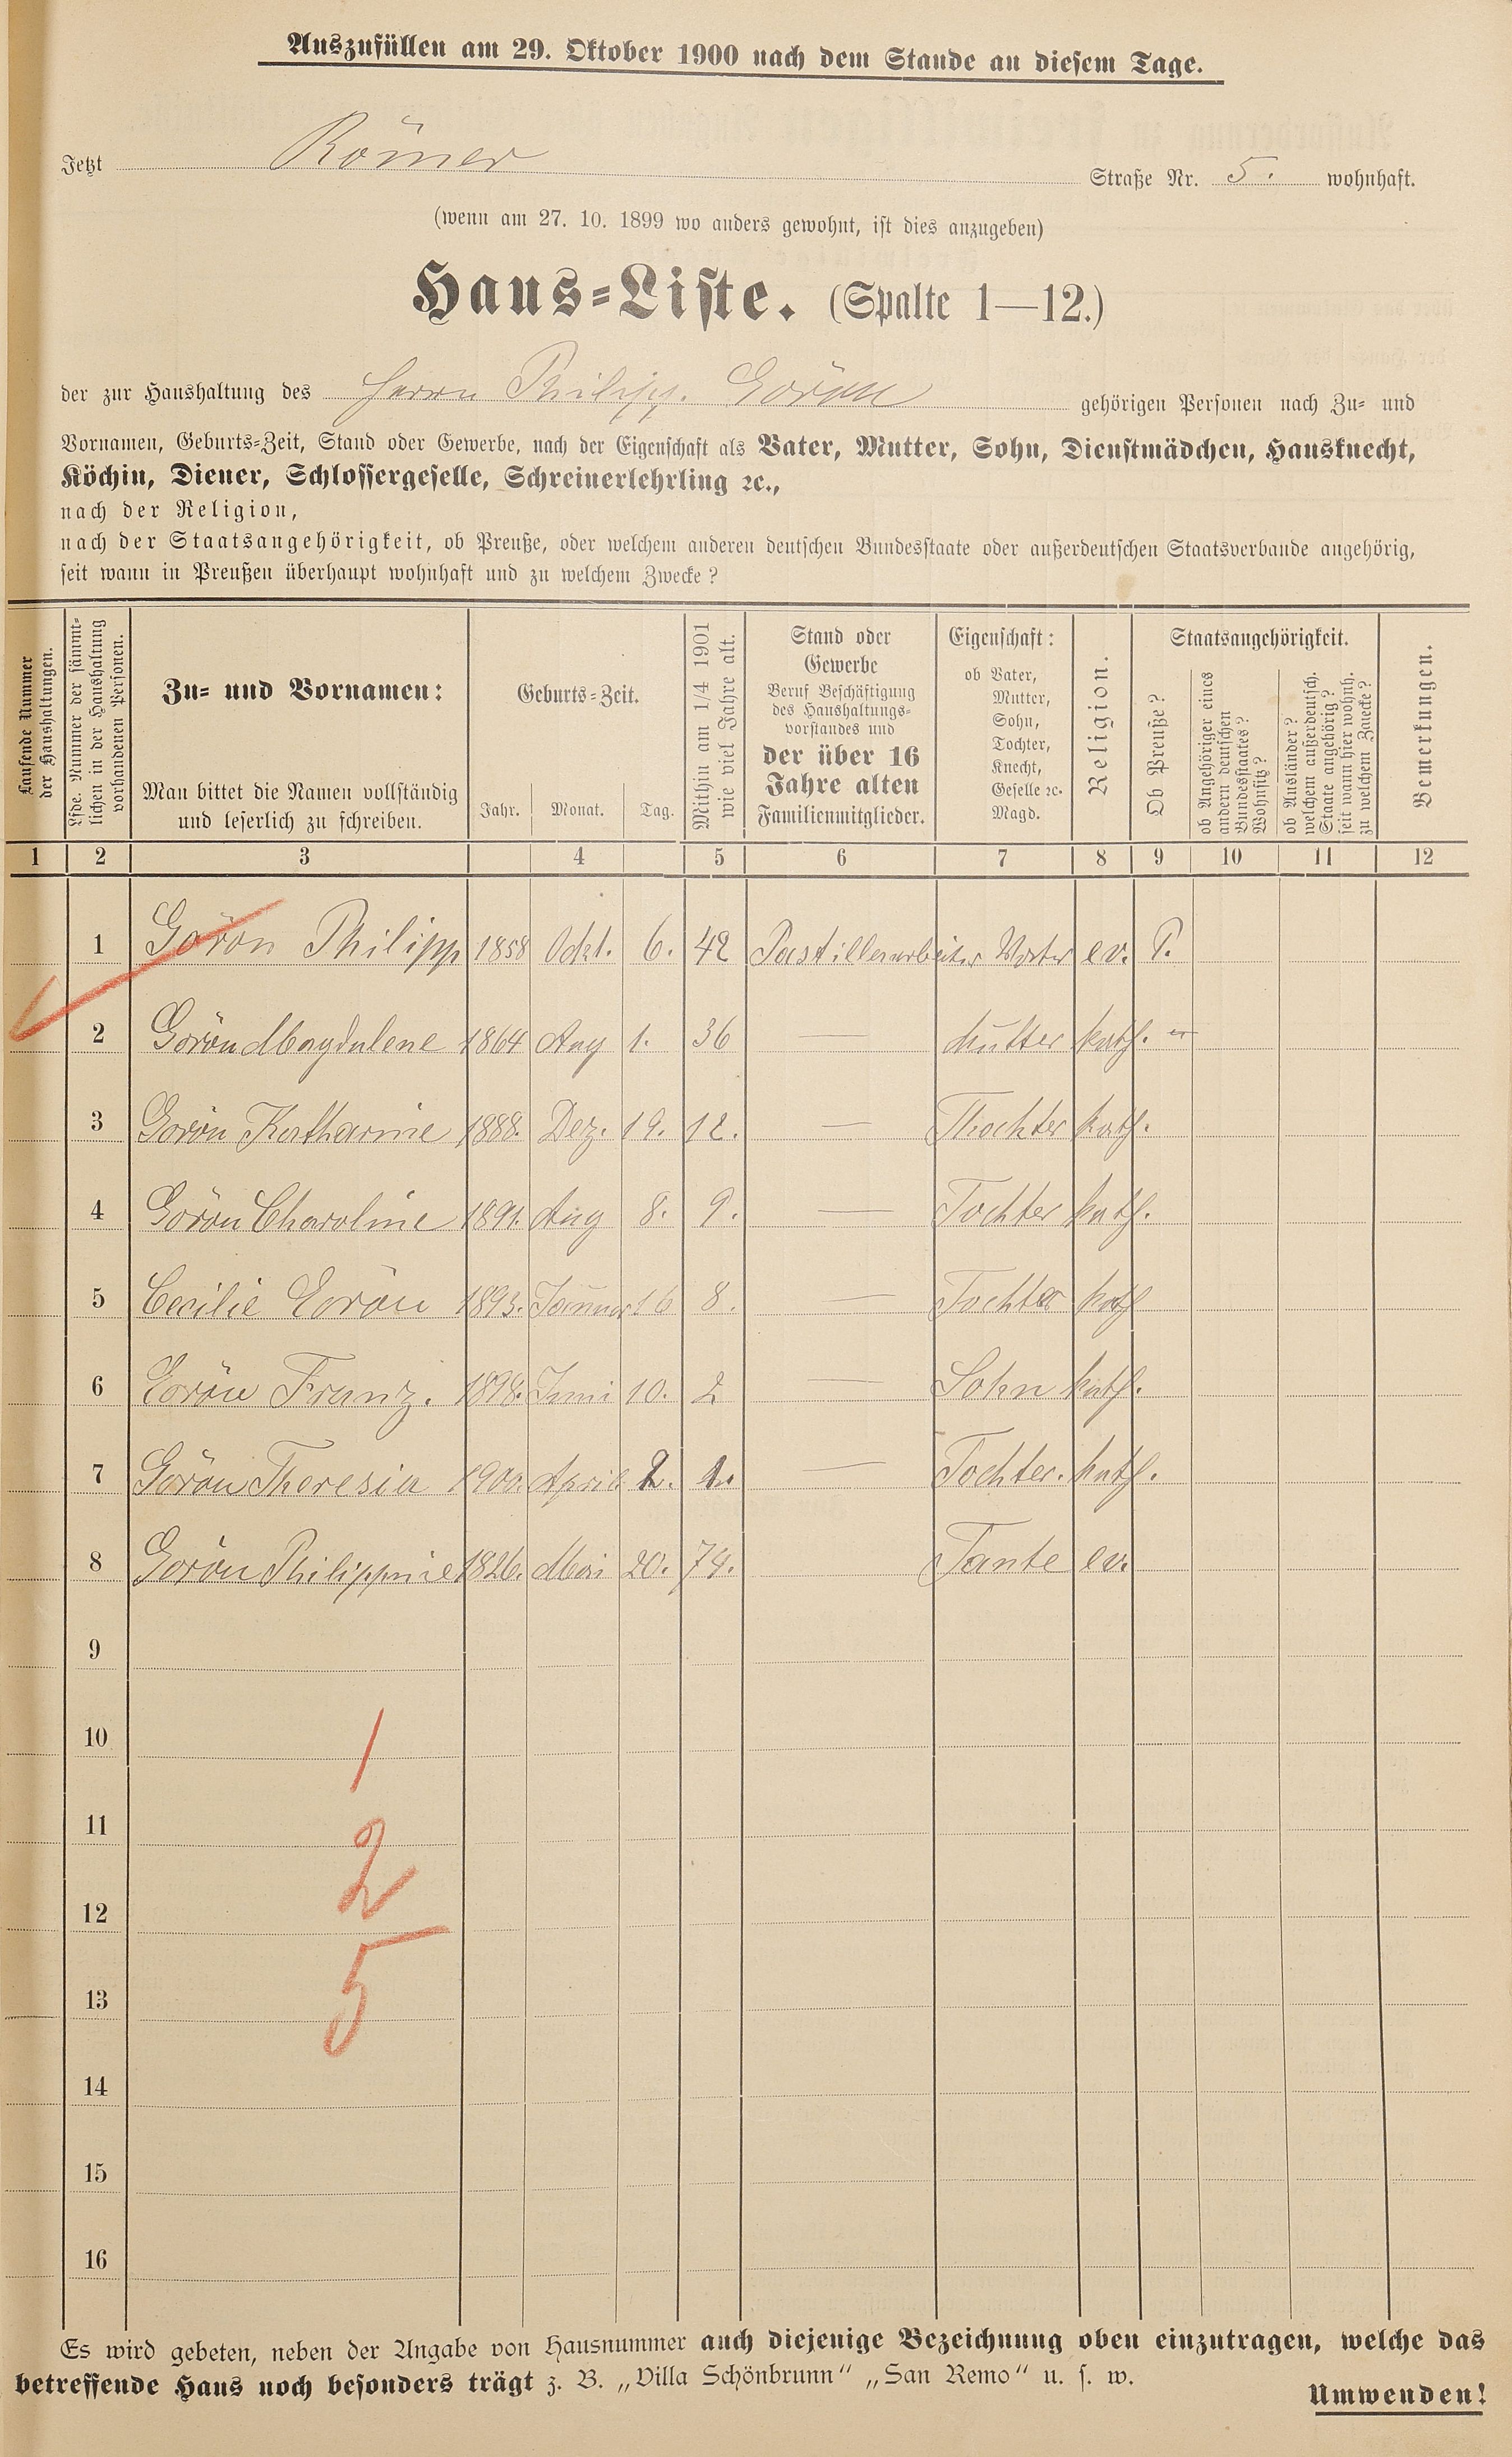 Auszufüllen am 29. Oktober 1900 nach dem Stande an diesem Tage.
Jetzt Römer Straße Nr. 5. wohnhaft.
(wenn am 27. 10. 1899 wo anders gewohnt, ist dies anzugeben)
Haus-Liste. (Spalte 1—12.)
der zur Haushaltung des Herrn Philipp. Gorön gehörigen Personen nach Zu- und
Vornamen, Geburts-Zeit, Stand oder Gewerbe, nach der Eigenschaft als Vater, Mutter, Sohn, Dienstmädchen, Hausknecht,
Köchin, Diener, Schlossergeselle, Schreinerlehrling ꝛc.,
nach der Religion,
nach der Staatsangehörigkeit, ob Preuße, oder welchem anderen deutschen Bundesstaate oder außerdeutschen Staatsverbande angehörig,
seit wann in Preußen überhaupt wohnhaft und zu welchem Zwecke?
Laufende Nummer
der Haushaltungen.
Lfde. Nummer der sämmt-
lichen in der Haushaltung
vorhandenen Personen.
Zu- und Vornamen:
Man bittet die Namen vollständig
und leserlich zu schreiben.
Geburts-Zeit.
Jahr. Monat. Tag.
Mithin am 1/4 1901
wie viel Jahre alt.
Stand oder
Gewerbe
Beruf Beschäftigung
des Haushaltungs-
vorstandes und
der über 16
Jahre alten
Familienmitglieder.
Eigenschaft:
ob Vater,
Mutter,
Sohn,
Tochter,
Knecht,
Geselle ꝛc.
Magd.
Religion.
Staatsangehörigkeit.
Ob Preuße?
ob Angehöriger eines
andern deutschen
Bundesstaates?
Wohnsitz?
ob Ausländer?
welchem außerdeutsch.
Staate angehörig?
seit wann hier wohnh.
zu welchem Zwecke?
Bemerkungen.
1 2 3 4 5 6 7 8 9 10 11 12
1 Gorön Philipp 1858 Okt. 6. 42 Pastillenarbeiter Vater ev. P.
2 Gorön Magdalene 1864 Aug 1. 36 — Mutter kath. "
3 Gorön Katharine 1888. Dez. 19. 12. — Thochter kath.
4 Gorön Charoline 1891. Aug 8. 9. — Tochter kath.
5 Cecilie Gorön 1893. Januar 16 8. — Tochter kath
6 Gorön Franz. 1898. Juni 10. 2 — Sohn kath.
7 Gorön Theresia 1900. April 2. 1. — Tochter. kath.
8 Gorön Philippine 1826. Mai 20. 74. Tante ev.
9
10
1
11
2
12
5
13
14
15
16
Es wird gebeten, neben der Angabe von Hausnummer auch diejenige Bezeichnung oben einzutragen, welche das
betreffende Haus noch besonders trägt z. B. „Villa Schönbrunn" „San Remo" u. s. w.
Umwenden!